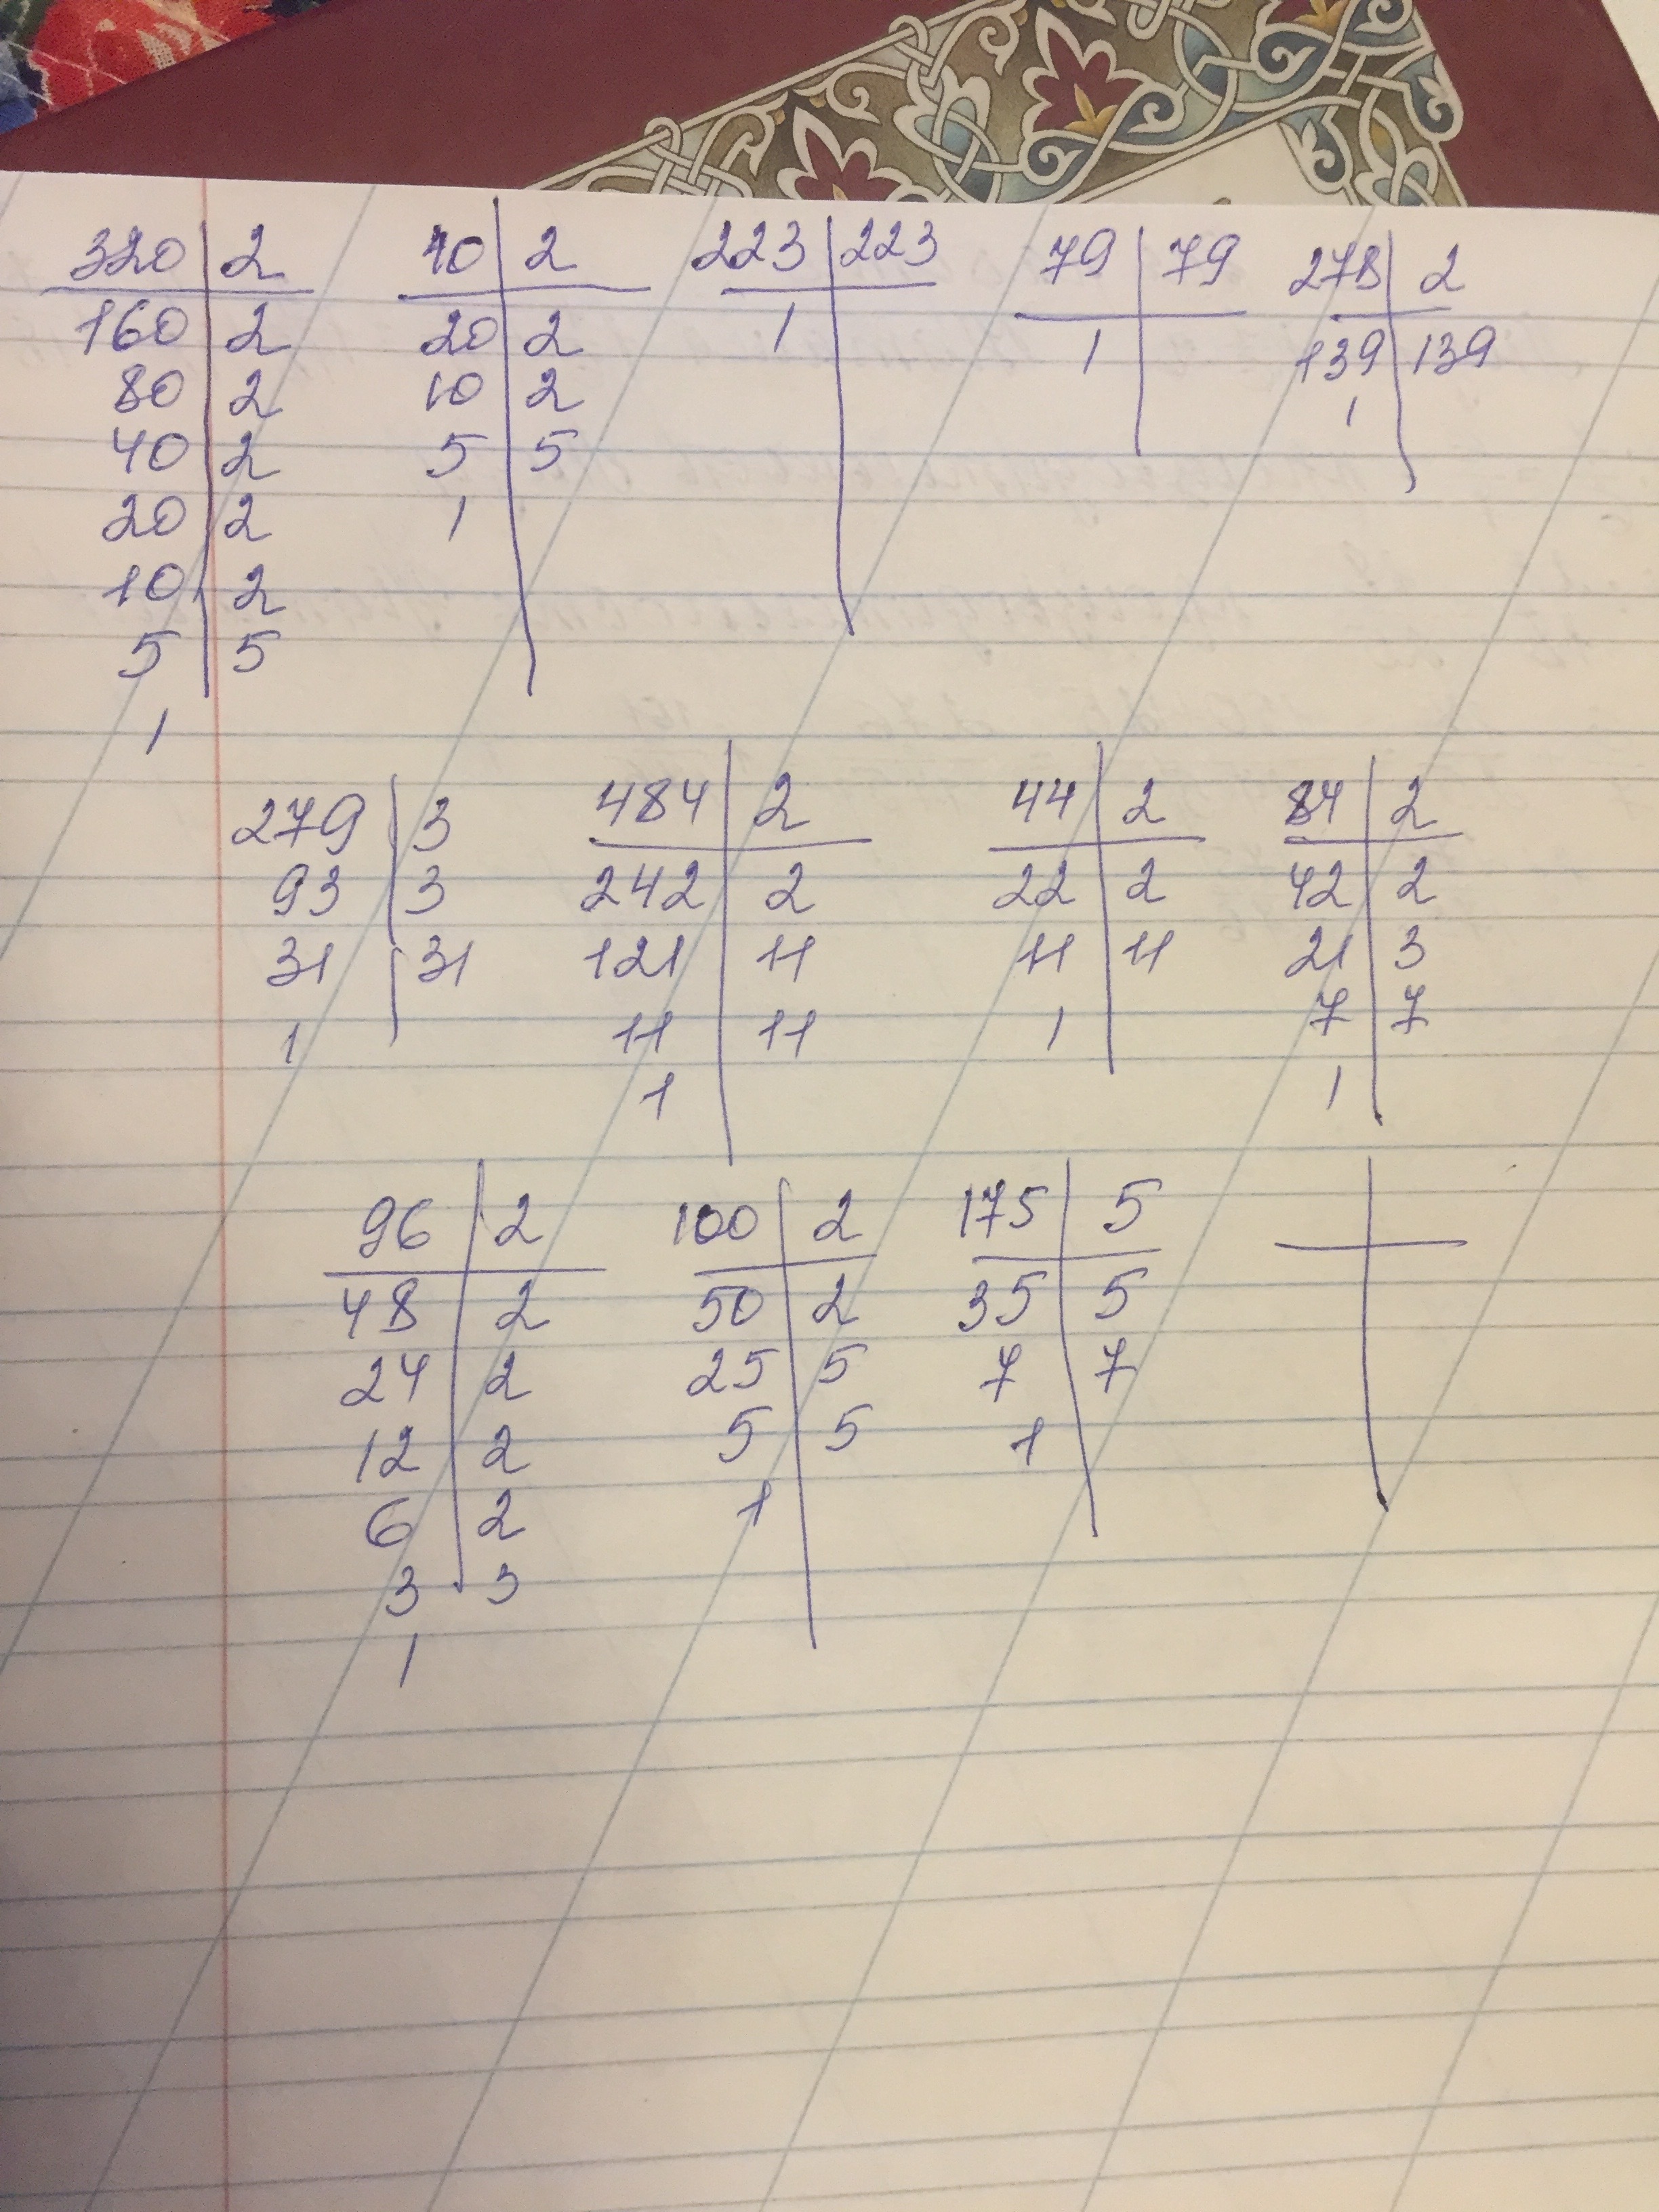 320 2 40 2 223 223 79 79 278 2
160 2 20 2 1 1 139 139
80 2 10 2 1
40 2 5 5
20 2 1
10 2
5 5
1
279 3 484 2 44 2 84 2
93 3 242 2 22 2 42 2
31 31 121 11 11 11 21 3
1 11 11 1 7 7
1 1
96 2 100 2 175 5
48 2 50 2 35 5
24 2 25 5 7 7
12 2 5 5 1
6 2 1
3 3
1